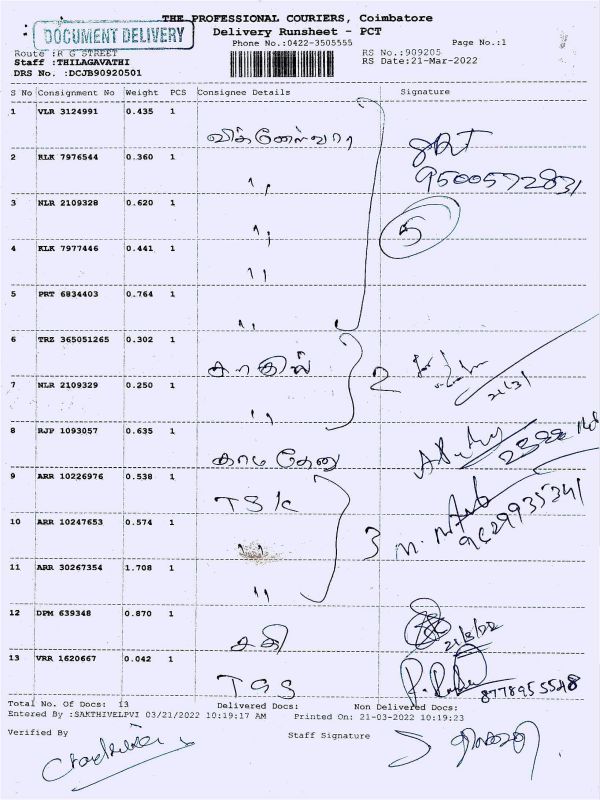 THE PROFESSIONAL COURIERS, Coimbatore
DOCUMENT DELIVERY
Delivery Runsheet - PCT
Phone No.:0422-3505555 Page No.:1
Route :R G STREET RS No.:909205
Staff :THILAGAVATHI RS Date:21-Mar-2022
DRS No. :DCJB90920501
S No Consignment No Weight PCS Consignee Details Signature
1 VLR 3124991 0.435 1
9500572831
2 RLK 7976544 0.360 1
"
3 NLR 2109328 0.620 1
" 5
4 KLK 7977446 0.441 1
"
5 PRT 6834403 0.764 1
"
6 TRZ 365051265 0.302 1
2
21/3/
7 NLR 2109329 0.250 1
"
8 RJP 1093057 0.635 1
காமதேனு
9 ARR 10226976 0.538 1
TSK
10 ARR 10247653 0.574 1
" 3
11 ARR 30267354 1.708 1
"
12 DPM 639348 0.870 1
சகி 21/3/22
13 VRR 1620667 0.042 1
TGS
Total No. Of Docs: 13 Delivered Docs: Non Delivered Docs:
Entered By :SAKTHIVELPVI 03/21/2022 10:19:17 AM Printed On: 21-03-2022 10:19:23
Verified By Staff Signature